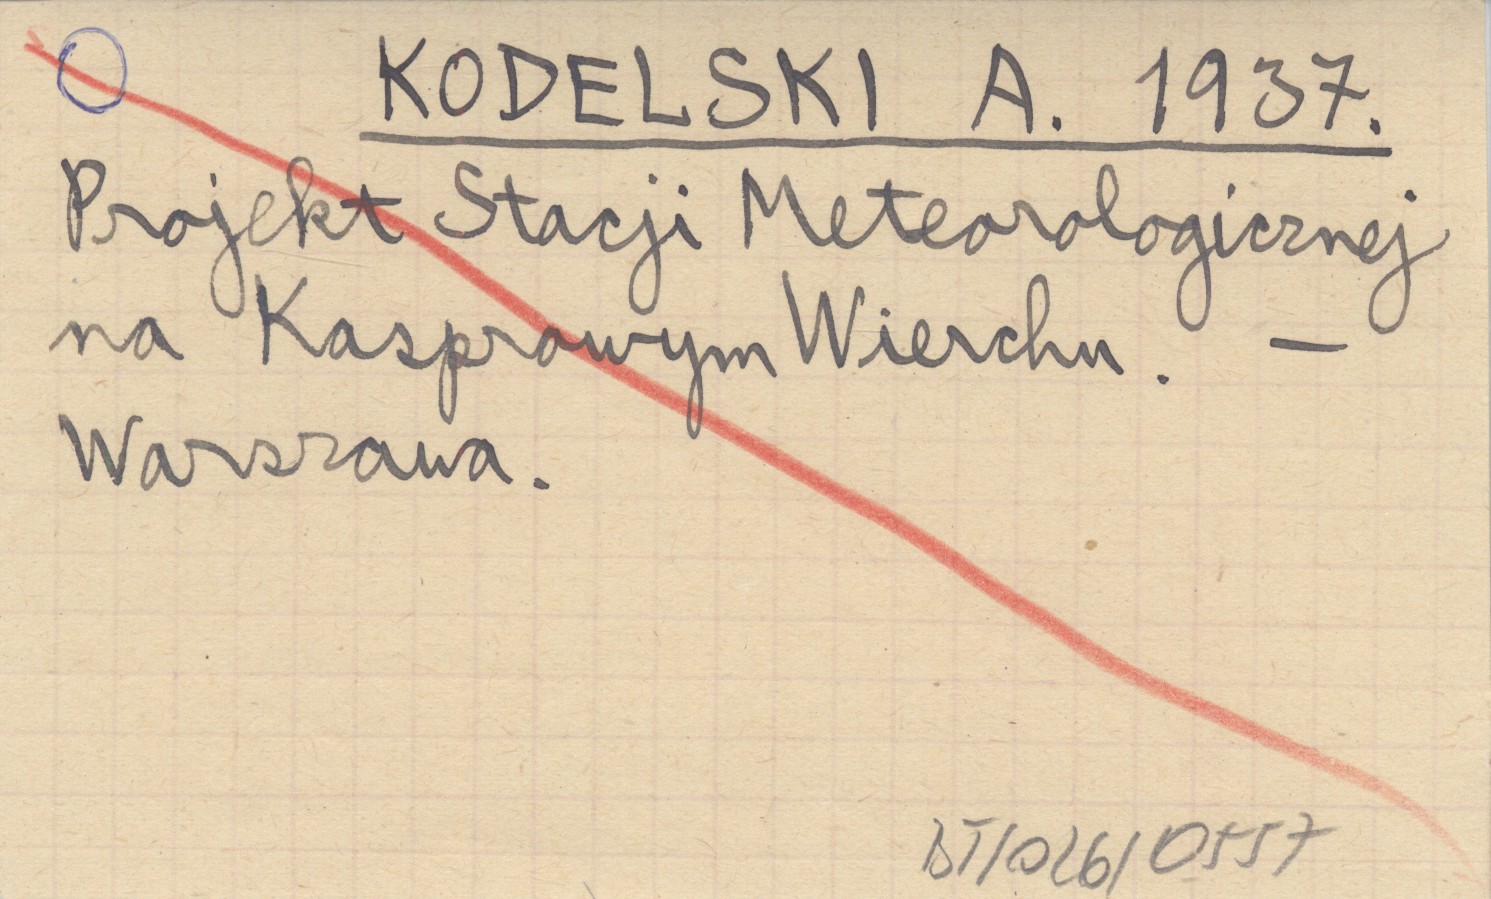 KODELSKI A. 1937.
Projekt Stacji Meteorologicznej
na Kasprowym Wierchu. —
Warszawa.
BT/026/0557